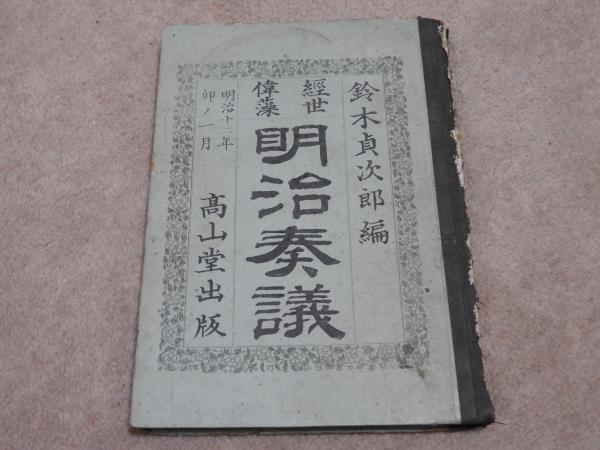 鈴木貞次郎編
經世
偉藻
明治奏議
明治十二年
卯ノ一月
高山堂出版